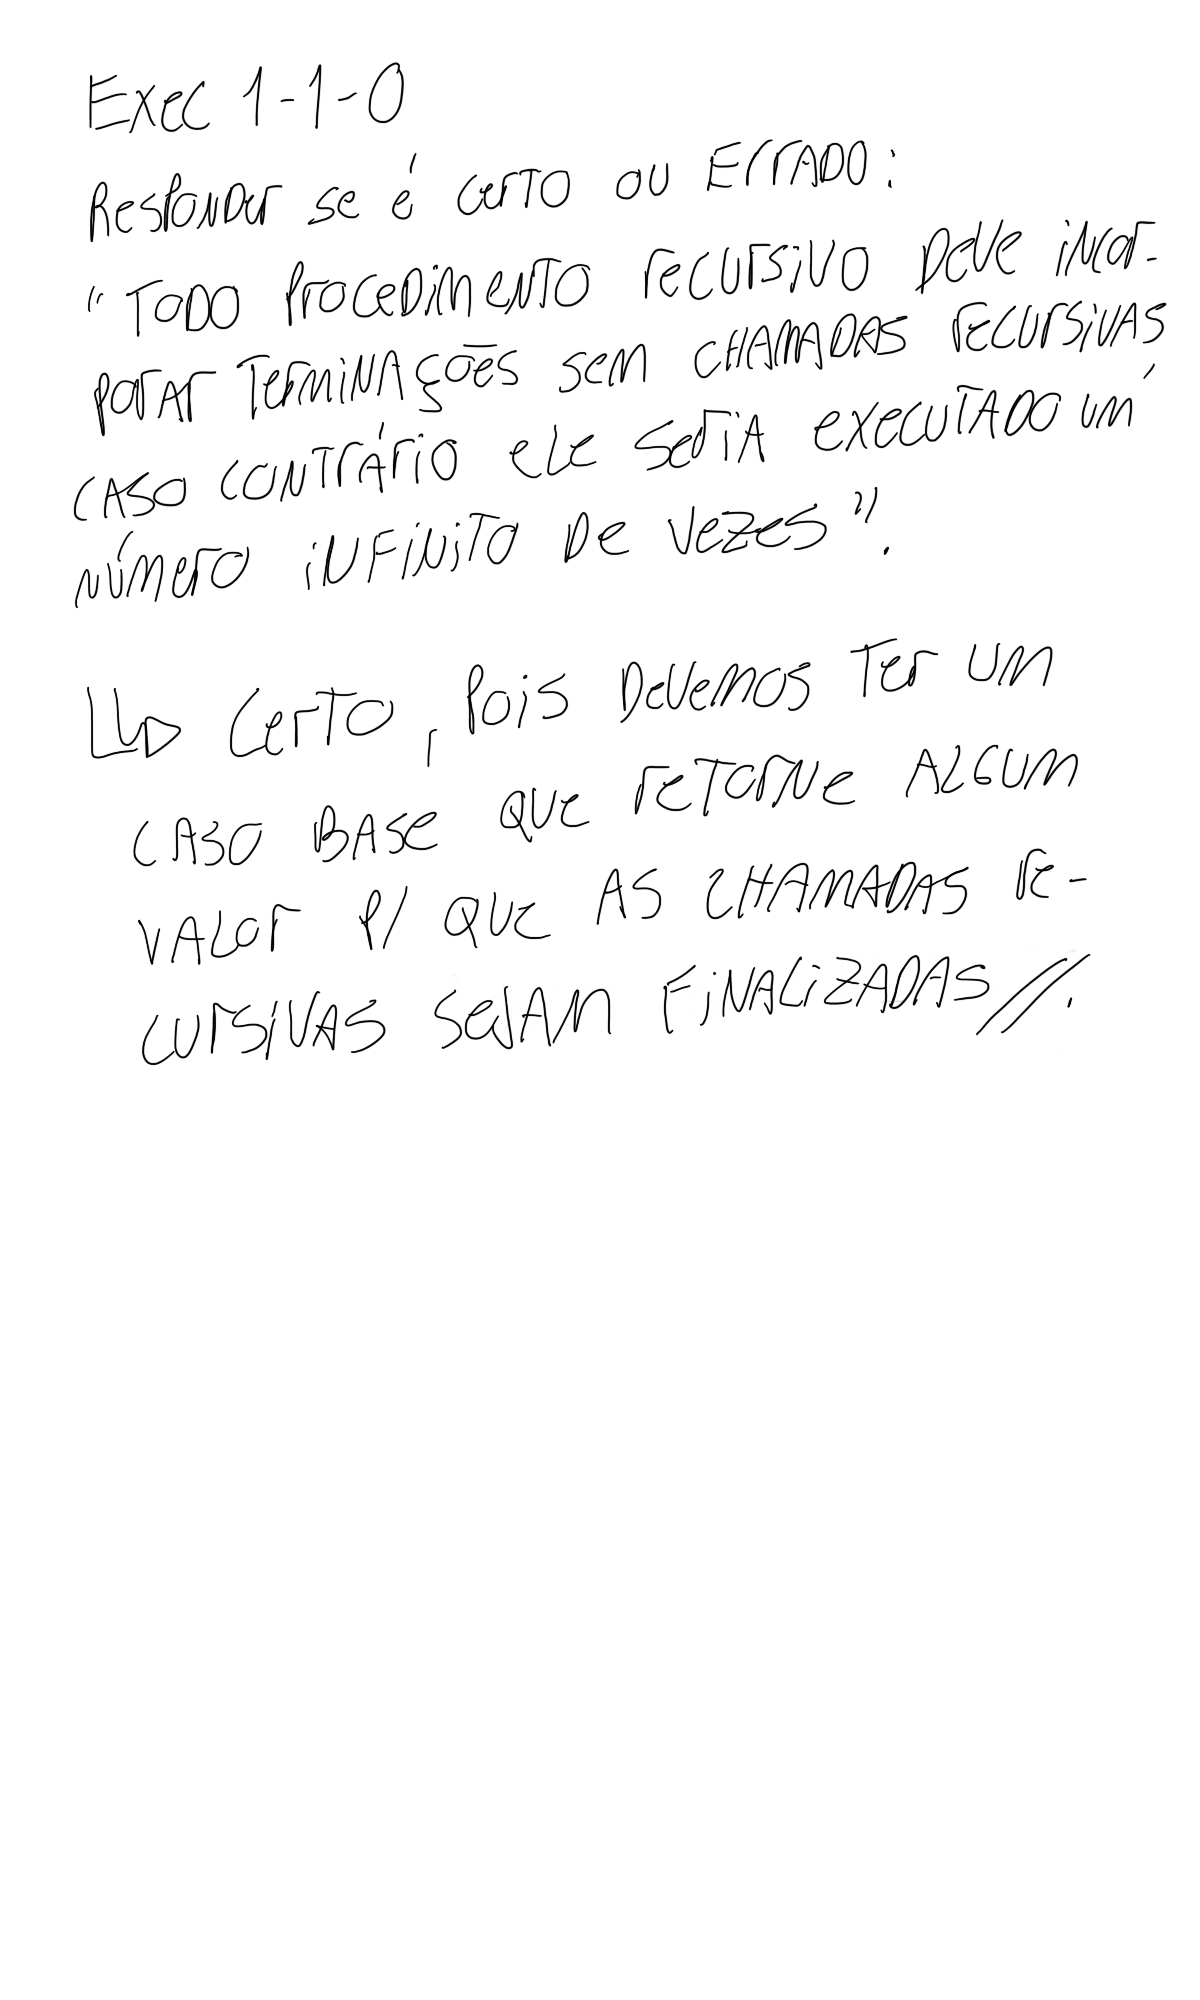 Exec 1-1-0
Responder se é certo ou errado:
"Todo procedimento recursivo deve incor-
porar terminações sem chamadas recursivas
caso contrário ele seria executado um
número infinito de vezes".
Certo, pois devemos ter um
caso base que retorne algum
valor p/ que as chamadas re-
cursivas sejam finalizadas//.